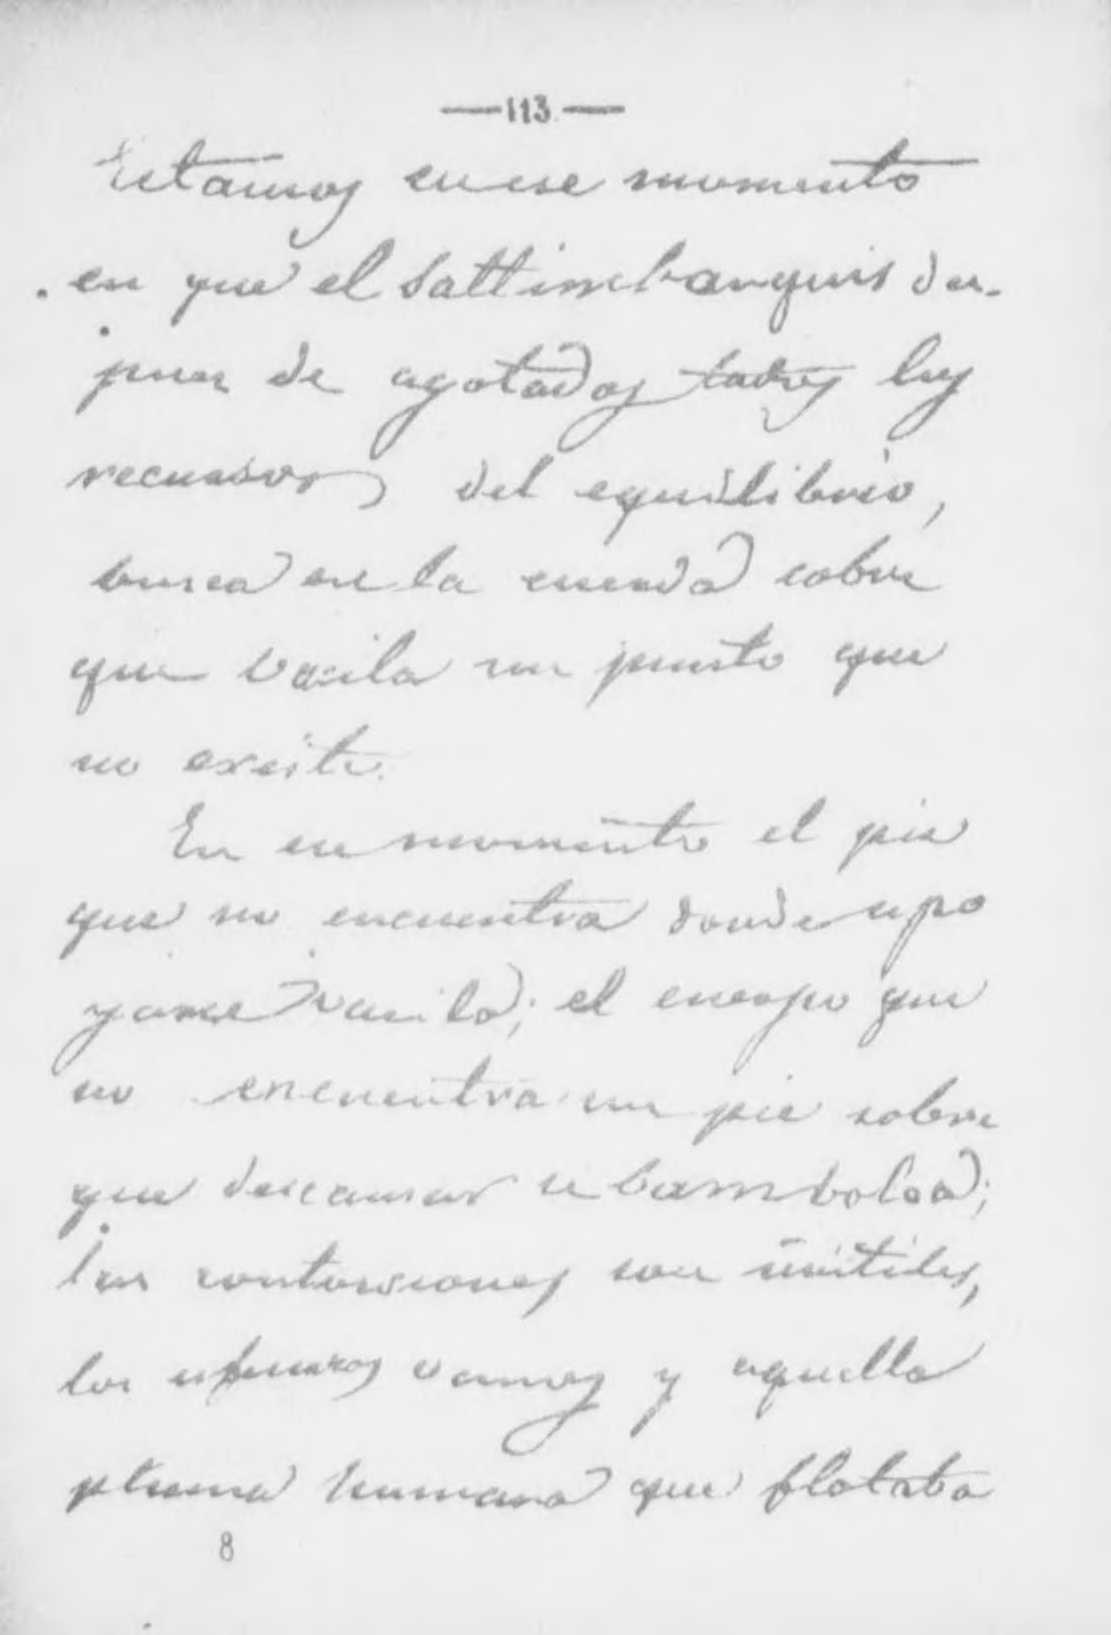 —113—
Estamos en ese momento
en que el saltimbanquis des-
pues de agotados todos los
recursos del equilibrio,
busca en la cuerda sobre
que vacila un punto que
no existe.
En ese momento el pie
que no encuentra donde apo
yarse vacila; el cuerpo que
no encuentra un pie sobre
que descansar se bambolea;
las contorsiones son inútiles,
los esfuerzos vanos y aquella
pluma humana que flotaba
8